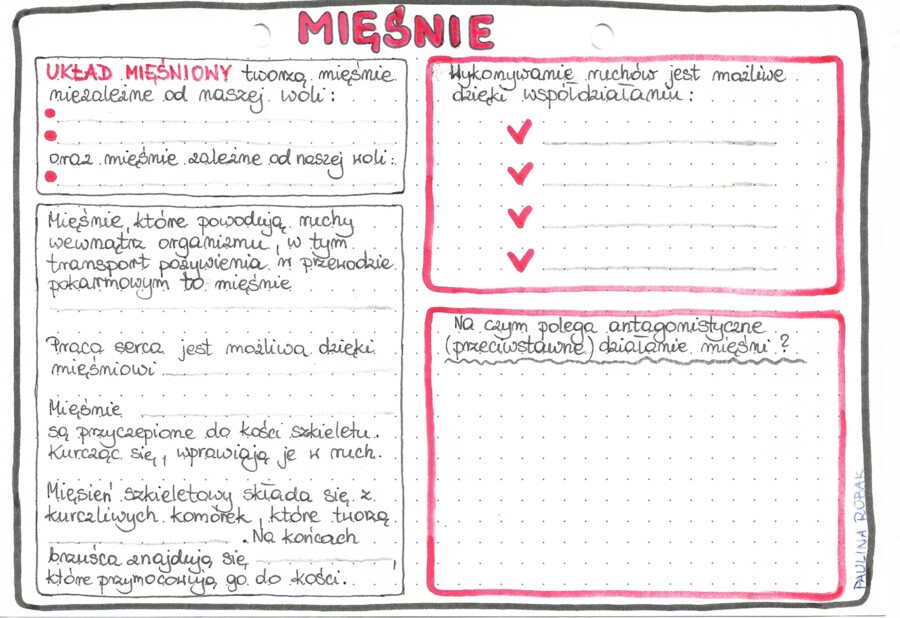 MIĘŚNIE
UKŁAD MIĘŚNIOWY tworzą mięśnie
niezależne od naszej woli:
oraz mięśnie zależne od naszej woli:
Mięśnie, które powodują ruchy
wewnątrz organizmu, w tym
transport pożywienia w przewodzie
pokarmowym to mięśnie
Praca serca jest możliwa dzięki
mięśniowi
Mięśnie
są przyczepione do kości szkieletu.
Kurcząc się, wprawiają je w ruch.
Mięsień szkieletowy składa się z
kurczliwych komórek, które tworzą
. Na końcach
brzuśca znajdują się ,
które przymocowują go do kości.
Wykonywanie ruchów jest możliwe
dzięki współdziałaniu:
Na czym polega antagonistyczne
(przeciwstawne) działanie mięśni?
PAULINA ROBAK